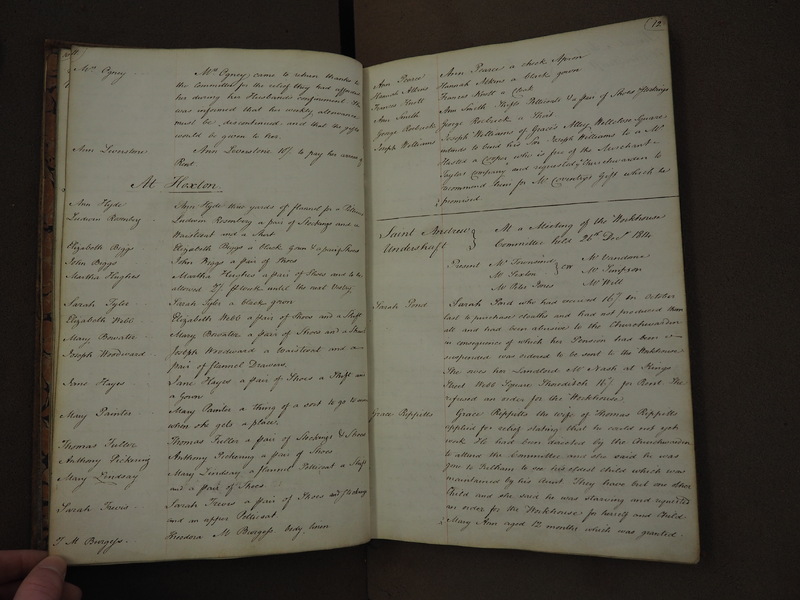 Mrs Ogney
Mrs Ogney came to return thanks to
the Committee for the relief they had afforded
her during her Husbands confinement She
was informed that her weekly allowance
must be discontinued and that the gifts
would be given to her
Ann Levenstone
Ann Levenstone 16/ to pay her arrears of
Rent
At Hoxton.
Ann Hyde
Ann Hyde three yards of flannel for a Petticoat
Ludwin Rosenberg
Ludwin Rosenberg a pair of Stockings and a
Waistcoat and a Shirt
Elizabeth Biggs
Elizabeth Biggs a black Gown & a pair of Shoes
John Biggs
John Biggs a pair of Shoes
Martha Hughes
Martha Hughes a pair of Shoes and to be
allowed 2/ a Week until the next Vestry
Sarah Tyler
Sarah Tyler a black gown
Elizabeth Webb
Elizabeth Webb a pair of Shoes and a Shift
Mary Bowater
Mary Bowater a pair of Shoes and a
Joseph Woodward
Joseph Woodward a Waistcoat and a
pair of flannel Drawers.
Jane Hayes
Jane Hayes a pair of Shoes a Shift and
a Gown
Mary Painter
Mary Painter a thing of a sort to go to
when she gets a place.
Thomas Fuller
Thomas Fuller a pair of Stockings & Shoes
Anthony Pickering
Anthony Pickering a pair of Shoes
Mary Lindsay
Mary Lindsay a flannel Petticoat a Shift
and a pair of Shoes
Sarah Trevis
Sarah Trevis a pair of Shoes and Stockings
and an upper Petticoat
T. M Burgess
Theodora M Burgess. Body linen
12
Ann Pearce
Ann Pearce a check Apron
Hannah Atkins
Hannah Atkins a black gown
Frances Knott
Frances Knott a Cloak
Ann Smith
Ann Smith Shift Petticoat & a pair of Shoes & Stockings
George Roebuck
George Roebuck a Shirt
Joseph Williams
Joseph Williams of Graces Alley Wellclose Square
intends to bind his Son Joseph Williams to a Mr
Master a Cooper who is free of the Merchant
Taylors Company and requested the Churchwarden to
recommend him for Mr Coventrys Gift which he
promised
Saint Andrew
Undershaft
At a Meeting of the Workhouse
Committee held 26th Decr. 1814
Present
Mr Townsend
Mr Sexton
Mr Peter Jones
Mr Vandome
Mr Simpson
Mr Will
Sarah Pond
Sarah Pond who had received 16/ in October
last to purchase cloaths and had not produced them
all and had been abusive to the Churchwarden
in consequence of which her Pension had been
suspended was ordered to be sent to the Workhouse
She owes her Landlord Mr Nash at Kings
Street Webb Square Shoreditch 16/ for Rent. She
refused an order for the Workhouse
Grace Reppells
Grace Reppells the wife of Thomas Reppells
applied for relief stating that he could not get
work He had been desired by the Churchwarden
to attend the Committee and she said he was
gone to Feltham to see his eldest child which was
maintained by his Aunt. They have but one other
Child and she said he was starving and requested
an order for the Workhouse for herself and Child
Mary Ann aged 12 months which was granted.